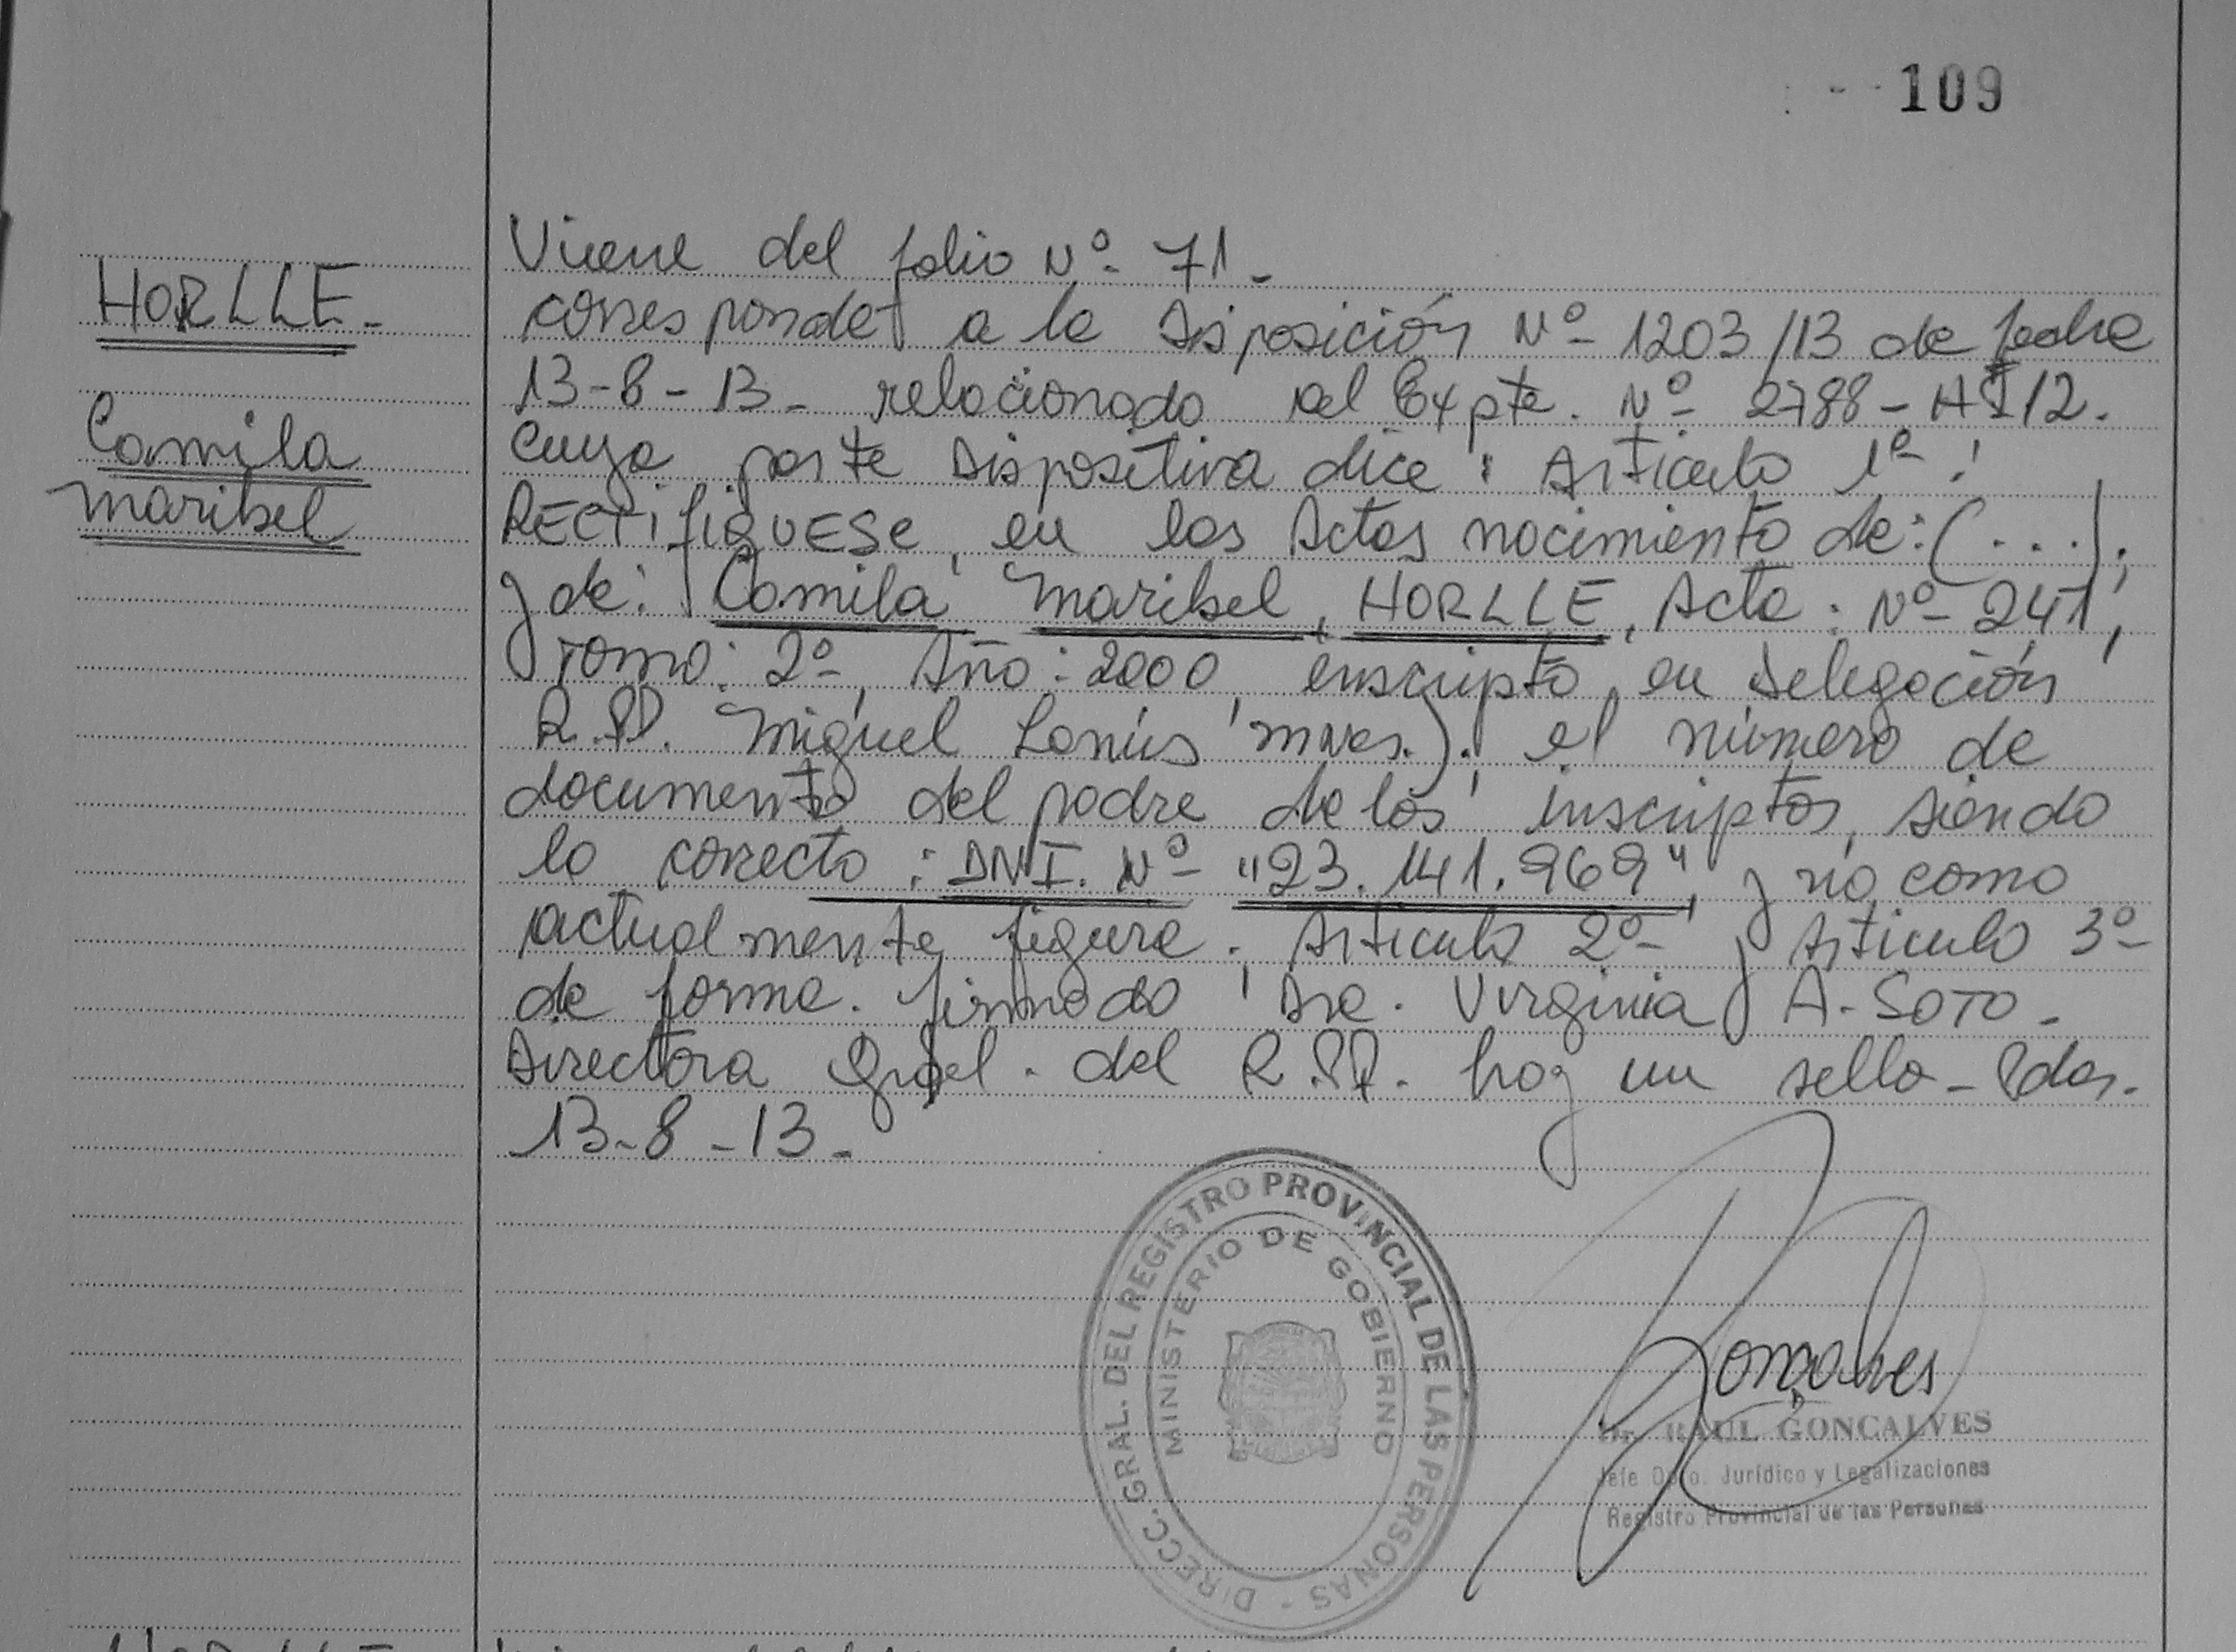 109
HORLLE-
Camila
Maribel
Viene del folio Nº 71-
correspondet a la Disposición Nº 1203/13 de fecha
13-8-13- relacionado al Expte. Nº 2788-H-12.
cuya parte Dispositiva dice: Articulo 1º:
RECTIFIQUESE, en las Actas nacimiento de: (...);
y de: Camila Maribel, HORLLE, Acta: Nº 241,
Tomo: 2º, Año: 2000, inscripto, en Delegación
R.P.P. Miguel Lanús mnes.). el número de
documento del padre de los inscriptos, siendo
lo correcto: DNI. Nº "23.141.969", y no como
actualmente figura. Articulo 2º y Articulo 3º
de forma. firmado Dra. Virginia A. SOTO-
Directora Gral. del R.P.P. hay un sello- Pdas.
13-8-13-
DIRECC. GRAL. DEL REGISTRO PROVINCIAL DE LAS PERSONAS -
MINISTERIO DE GOBIERNO
Gonçalves
Dr. RAUL GONÇALVES
Jefe Dpto. Jurídico y Legalizaciones
Registro Provincial de las Personas